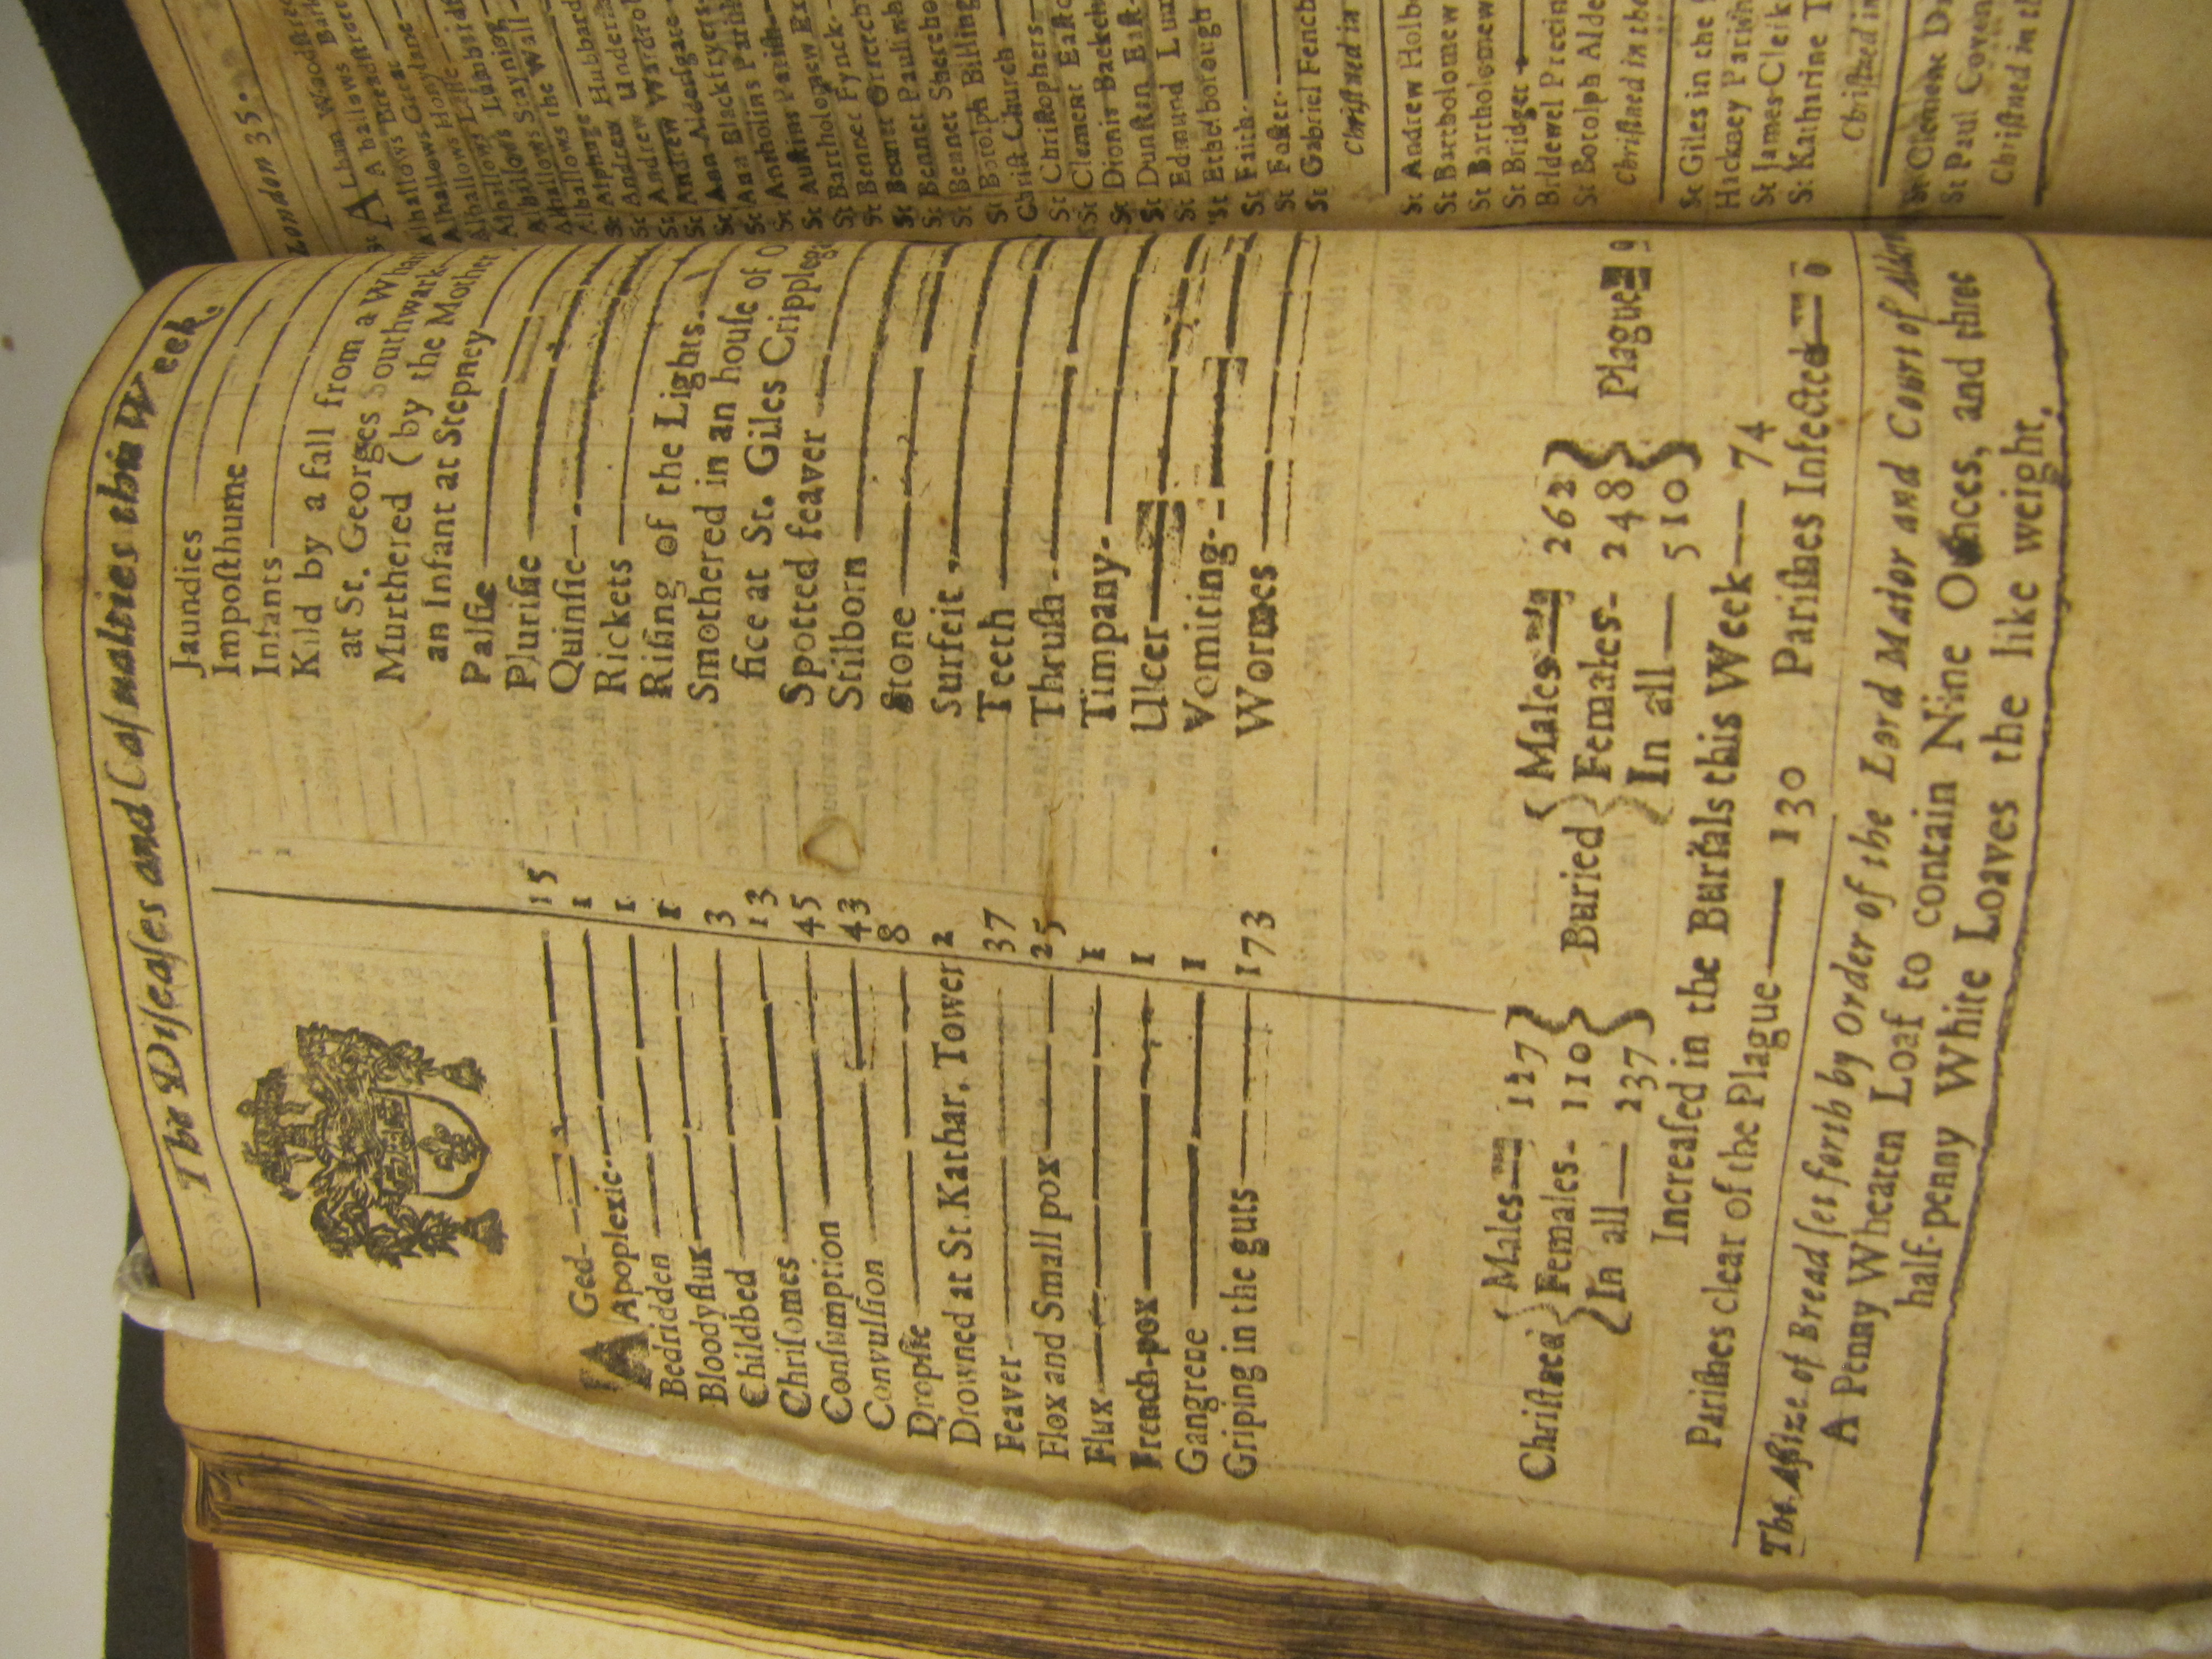 The Diseases and Casualties this Week.
AGed 15
Apoplexie 1
Bedridden 1
Bloodyflux 1
Childbed 3
Chrisomes 13
Consumption 45
Convulsion 43
Dropsie 8
Drowned at St. Kathar. Tower 2
Feaver 37
Flox and Small pox 25
Flux 1
French-pox 1
Gangrene 1
Griping in the guts 173
Jaundies
Imposthume
Infants
Kild by a fall from a
at St. Georges Southwark
Murthered (by the Mother
an Infant at Stepney
Palsie
Plurisie
Quinsie
Rickets
Rising of the Lights
Smothered in an house of
fice at St. Giles
Spotted feaver
Stilborn
Stone
Surfeit
Teeth
Thrush
Timpany
Ulcer
Vomiting
Wormes
Christned Males 127 Buried Males 262 Plague 0
Females 110 Females 248
In all 237 In all 510
Increased in the Burials this Week 74
Parishes clear of the Plague 130 Parishes Infected 0
The Assize of Bread set forth by Order of the Lord Maior and Court of
A Penny Wheaten Loaf to contain Nine Ounces, and three
half-penny White Loaves the like weight.
London 35.
ALban Woodstree
Alhallows Bark
Alhallows Breadstreet
Alhallows Great
Alhallows Hony
Alhallows Lesse
Alhallows Lumbardst
Alhallows Stayning
Alhallows the Wall
Alphage
St Andrew Hubbard
St Andrew Underi
St Andrew Wardrob
St Ann Aldersgate
St Ann Blackfryers
St Antholins Parish
St Austins Parish
St Bartholomew Ex
St Bennet Fynck
St Bennet Gracech
St Bennet Paulswh
St Bennet Sherehog
St Botolph Billing
Christ Church
St Christophers
St Clement Eastc
St Dionis Backch
St Dunstan East
St Edmund Lum
St Ethelborough
St Faith
St Foster
St Gabriel Fench
Christned in
St Andrew Holb
St Bartholomew
St Bartholomew
St Bridget
Bridewel Precin
St Botolph Alde
Christned in the
St Giles in the
Hackney Parish
St James Clerk
St Katharine T
Christned in
St Clement D
St Paul Coven
Christned in th